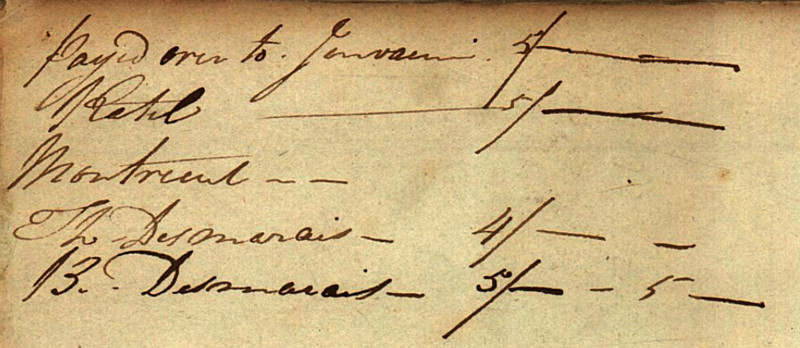 Payed over to. Jonvaem. 5/— — —
Ratel — 5/—
Montreeul — —
Th. Desmarais — 4/— —
B. Desmarais — 5/— - 5 —